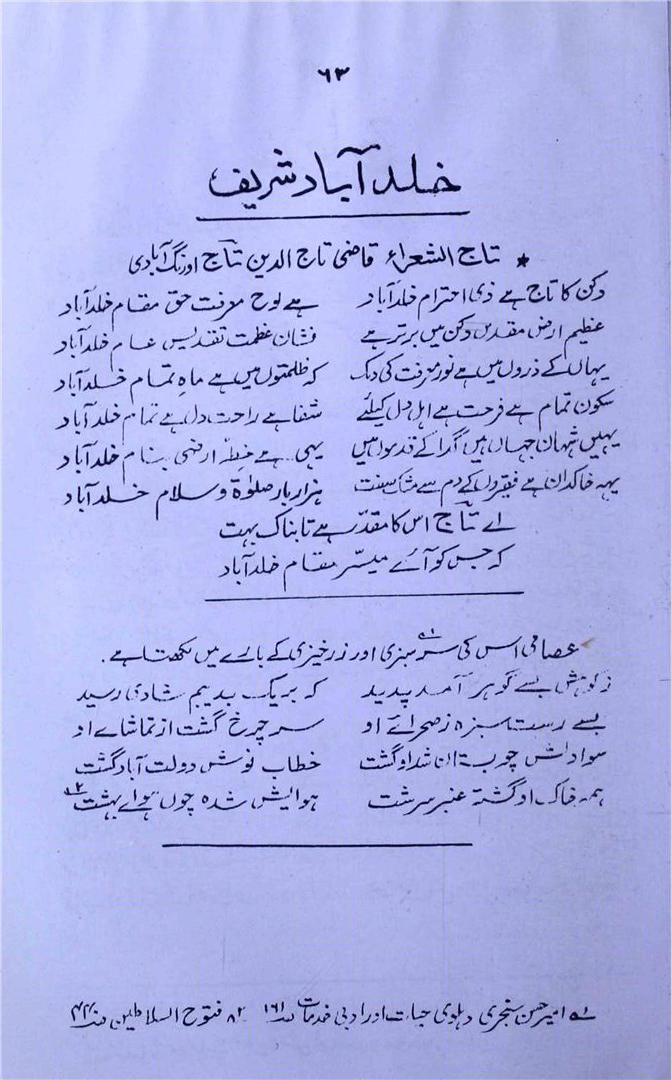 ۶۳
خلد آباد شریف
* تاج الشعراء قاضی تاج الدین تاؔج اورنگ آبادی
دکن کا تاج ہے ذی احترام خلدآباد ہے لوح معرفت حق مقام خلدآباد
عظیم ارض مقدس دکن میں برتر ہے نشان عظمت تقدیس عام خلدآباد
یہاں کے ذروں میں ہے نور معرفت کی دمک کہ ظلمتوں میں ہے ماہ تمام خلدآباد
سکون تمام ہے فرحت ہے اہل دل کیلئے شفا ہے راحت دل ہے تمام خلدآباد
یہیں شہان جہاں ہیں گدا کے قدموں میں یہی ہے خطۂ ارضی بنام خلدآباد
یہہ خاکدان ہے فقیروں کے دم سے مشک صفت ہزار بار صلوٰۃ و سلام خلدآباد
اے تاؔج اس کا مقدر ہے تابناک بہت
کہ جس کو آئے میسّر مقام خلدآباد
عصامی اس کی سرسبزی اور زرخیزی کے بارے میں لکھتا ہے۔ ۱؎
ز کوہش بسے گوہر آمد پدید کہ بریک بدیم شادی رسید
بسے رست سبزہ ز صحرائے او سر چرخ گشت از تماشائے او
سوادش چو بستان شد او گشت خطاب نوش دولت آباد گشت
ہمہ خاک او گشتہ عنبر سرشت ہوایش شدہ چوں ہوائے بہشت ۲؎
۱؎ امیر حسن سنجری دہلوی حیات اور ادبی خدمات ص۱۶۱ ۲؎ فتوح السلاطین